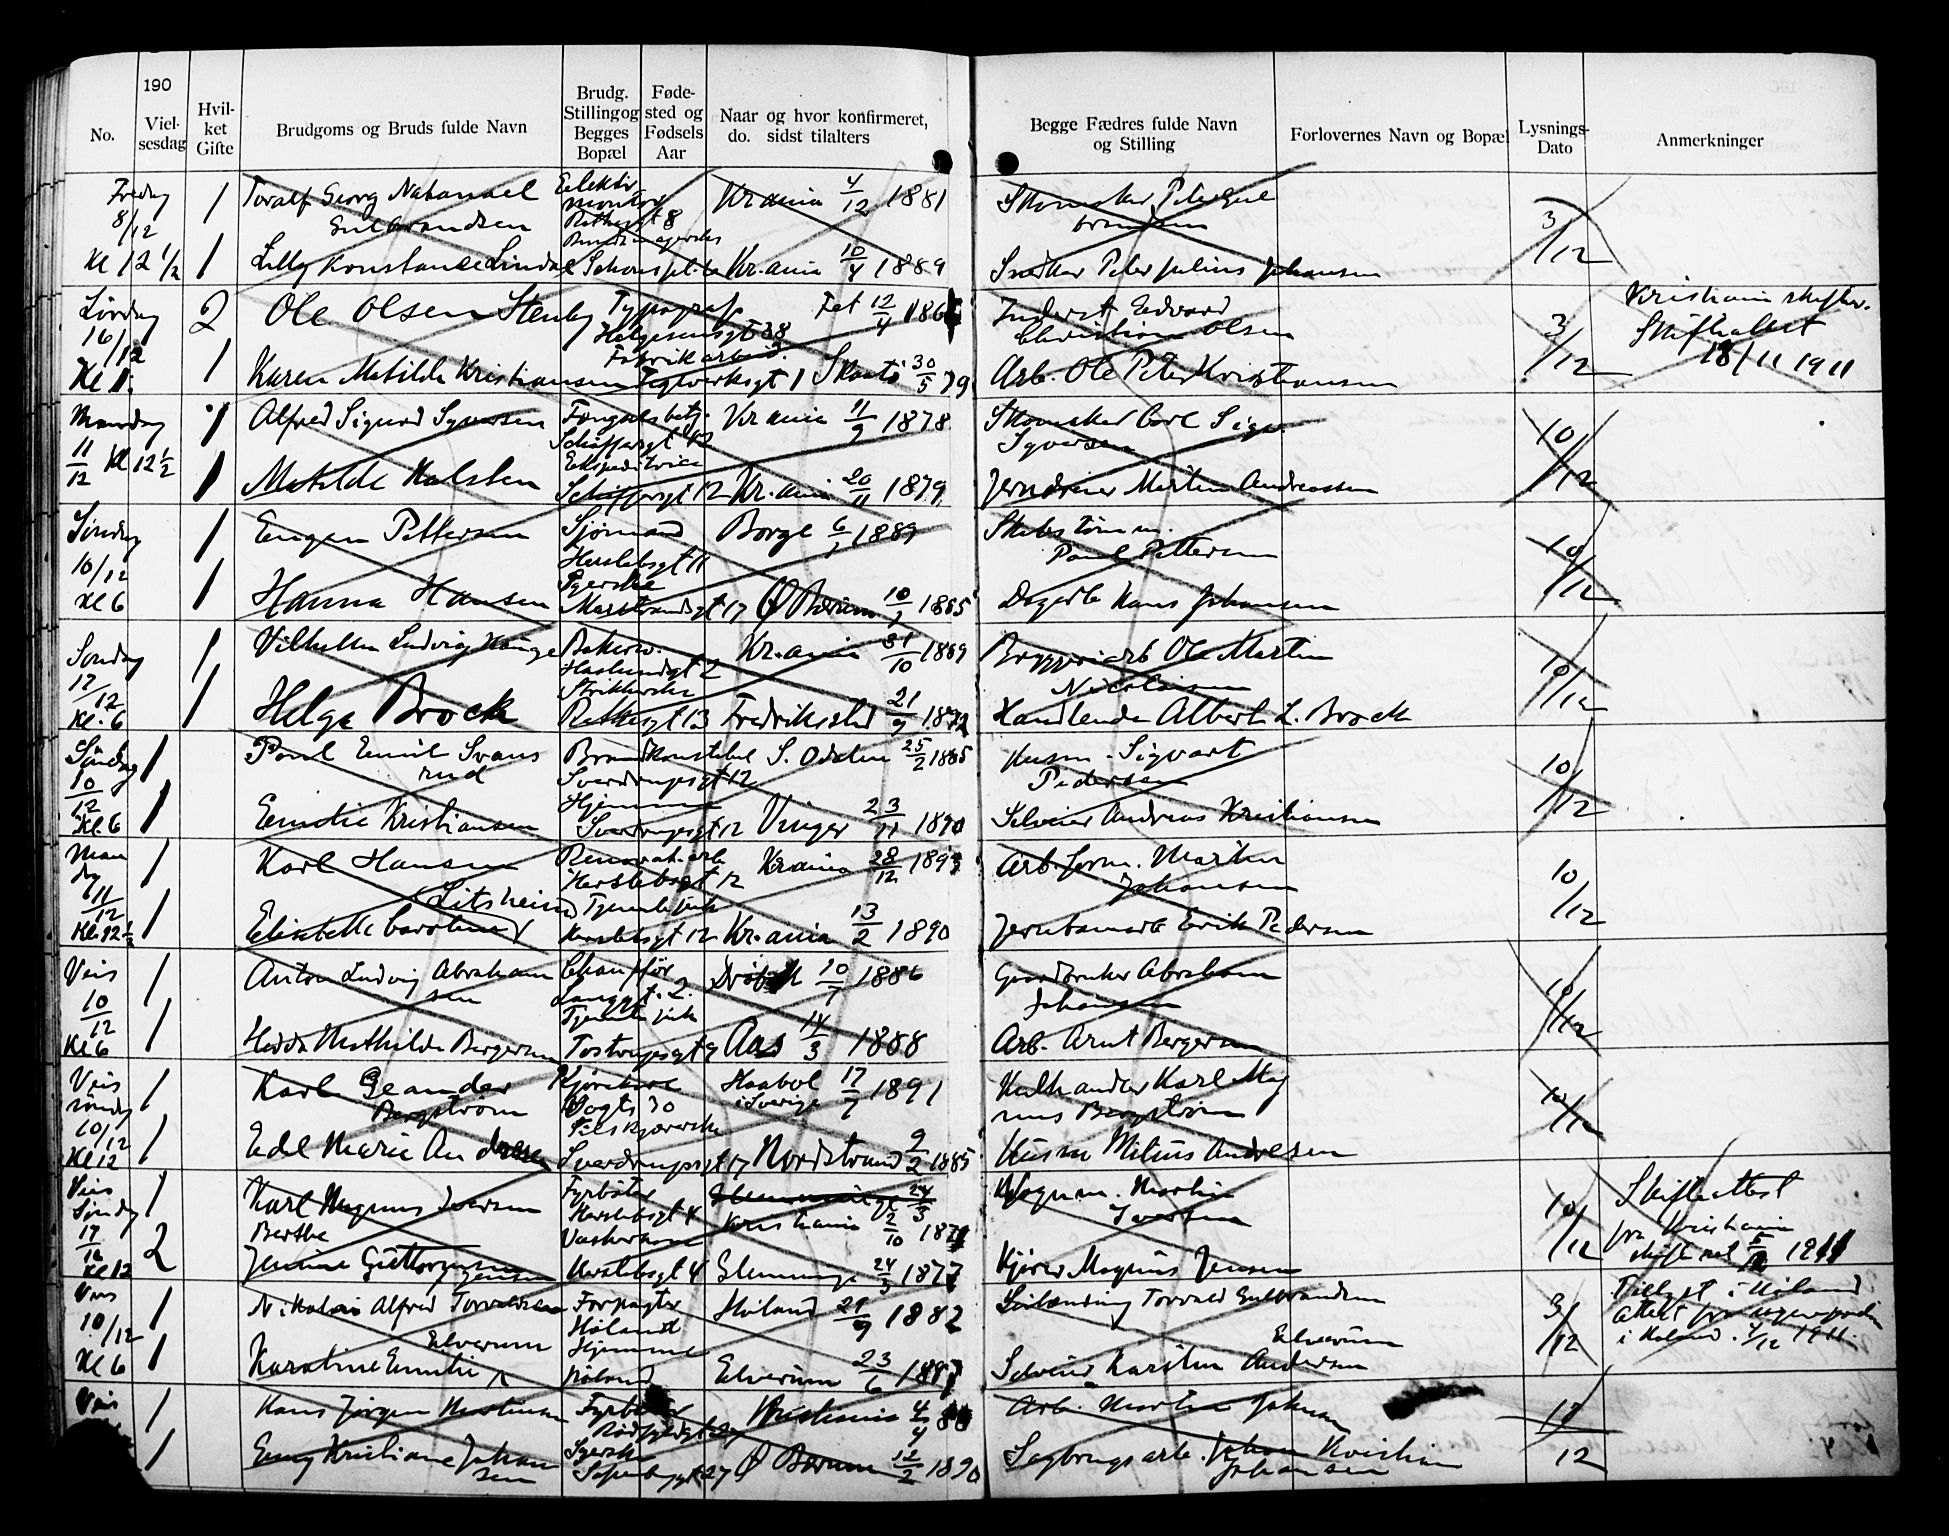 190
No.
Viel-
sesdag
Hvil-
ket
Gifte
Brudgoms og Bruds fulde Navn
Brudg.
Stilling og
Begges
Bopæl
Føde-
sted og
Fødsels
Aar
Naar og hvor konfirmeret,
do. sidst tilalters
Begge Fædres fulde Navn
og Stilling
Forlovernes Navn og Bopæl
Lysnings-
Dato
Anmerkninger
Fredag
8/12
Kl 12 1/2
1
Toralf Georg Natanael
Gulbrandsen
Elektr.
montør
Kr.ania 4/12 1881
Skomaker Peter Gul
brandsen
3/12
1
Lilly Konstance Lindal
Kr.ania 10/4 1889
Snedker Peter Julius Johansen
Lørdag
16/12
Kl 1.
2
Ole Olsen Stenby
Typograf
Helgesensgt 38
Fet 12/4
Inderst Edvard
Christian Olsen
3/12
Kristiania skifter.
Skifteattest
18/11 1911
1
Karen Matilde Kristiansen
Fabrikarbeid.
Teglverksgt 1
30/5 79
Arb. Ole Peter Kristiansen
Mandag
11/12 Kl 12 1/2
1
Alfred Sigurd Syversen
Fængselsbetj.
Schæffersgt 12
Kr.ania 11/9 1878
Skomaker Carl Sigv.
Syversen
10/12
1
Matilde Halsten
Ekspeditrice
Schæffersgt 12
Kr.ania 20/11 1879
Jerndreier Martin Andreassen
Søndag
10/12
Kl 6
1
Eugen Pettersen
Sjømand
Herslebsgt 11
Borge 6/1 1889
Skibstømm.
Paul Pettersen
10/12
1
Hanna Hansen
Syerske
Marstrandsgt 17
Ø Bærum 10/1 1885
Dagarb Hans Johansen
Søndag
17/12
Kl. 6
1
Vilhelm Ludvig Hauge
Bakersv.
Haslundsgt 2
Kr.ania 31/10 1889
Bryggeriarb Ole Martin
Nicolaisen
10/12
1
Helga Brock
Strikkerske
Rathkesgt 13
Fredriksstad 21/9 1892
Handlende Albert L. Brock
Søndag
10/12
Kl. 6
1
Paul Emil Svans
rud
Brandkonstabel
Sverdrupsgt 12
S. Odalen 25/2 1885
Husm. Sigvart
Pedersen
10/12
1
Emilie Kristiansen
Hjemme
Sverdrupsgt 12
Vinger 23/11 1890
Selveier Andreas Kristiansen
Man
dag
11/12
Kl. 12 1/2
1
Karl Hansen
Renovat. arb
Herslebsgt 12
Kr.ania 28/12 1893
Arb.form. Martin
Johansen
10/12
1
Litsheim
Elisabeth Caroline
Tjenestepike
Herslebsgt 12
Kr.ania 13/2 1890
Jernbanearb Erik Pedersen
Vies
10/12
Kl 6
1
Anton Ludvig Abraham
sen
Chauffør
Langgt. 2.
Drøbak 10/7 1886
Gaardbruker Abraham
Johansen
10/12
1
Hedda Mathilde Bergersen
Tjenestepik
Tostrupsgt 9
Aas 14/3 1888
Arb. Arnt Bergersen
Vies
søndag
10/12
Kl 12
1
Karl Leander
Bergstrøm
Kjørekarl
Vogts 30
Haabol
i Sverige 17/7 1891
Kulhandler Karl Mag
nus Bergstrøm
10/12
1
Edel Marie Andresen
Sverdrupsgt 17
Nordstrand 9/2 1885
Husm Milius Andresen
Vies
Søndag
17/12
Kl 12
1
Karl Magnus Iversen
Fyrbøter
Herslebsgt 4
Kristiania 2/10
Vognm. Martin
Iversen
10/12
Skifteattest
fra Kristiania
skifteret 5/12 1911
2
Berthe
Jensine Guttormsen
f. Jensen
Vaskerkone
Herslebsgt 4
Glemminge 24/3 1877
Kjører Magnus Jensen
Vies
10/12
Kl 6
1
Nikolai Alfred Torvaldsen
Forpagter
Høland
Høland 29/9 1882
Torvald Gulbrandsen
3/12
Tillyst i Høland
Attest fra sognepresten
i Høland. 4/12 1911.
1
Elverum
Karoline Emilie
Hjemme
Høland
Elverum 23/6
Elverum
Selveier Karsten Andersen
Vies
1
Hans Jørgen Martinsen
Fyrbøter
Kristiania 4/4 88
Arb. Martin Johansen
17/12
1
Emy Kristiane Johan
sen
Syerske
Ø Bærum 12/2 1890
Sagbrugsarb. Johan Kristian
Johansen